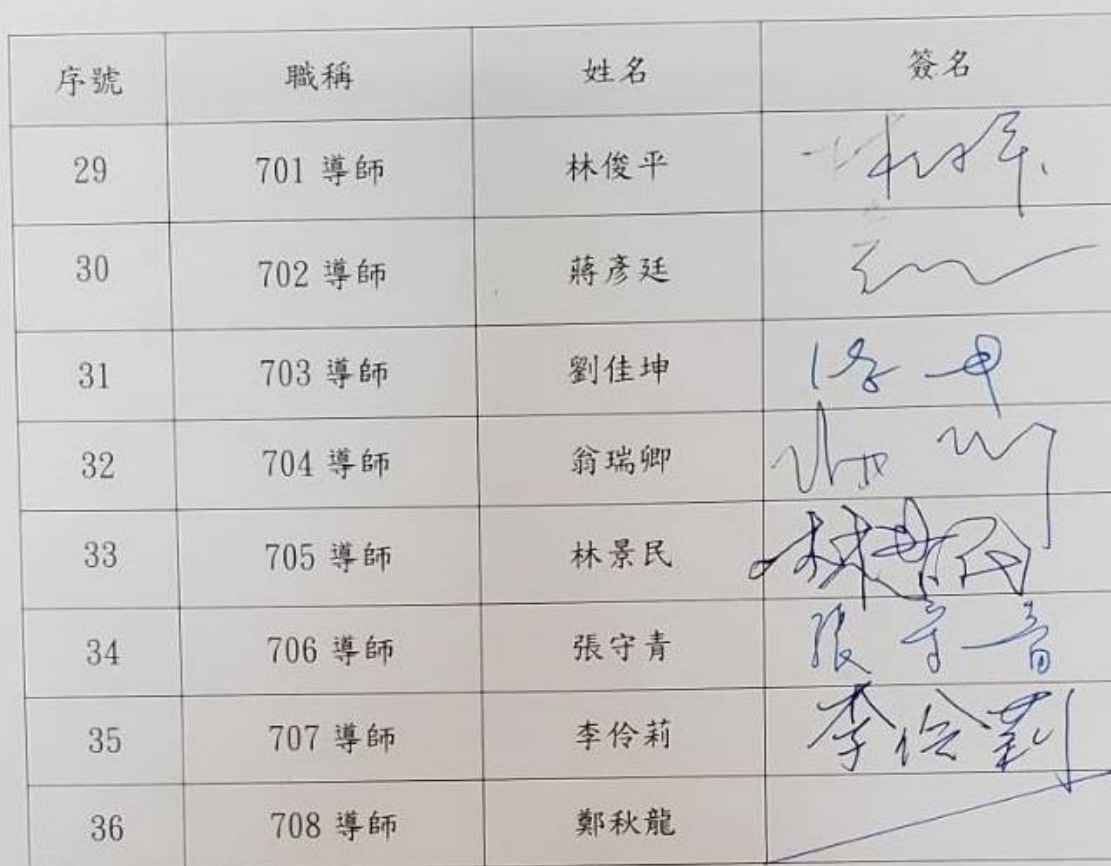 序號 職稱 姓名 簽名
29 701 導師 林俊平
30 702 導師 蔣彥廷
31 703 導師 劉佳坤
32 704 導師 翁瑞卿
33 705 導師 林景民 林景民
34 706 導師 張守青 張守青
35 707 導師 李伶莉 李伶莉
36 708 導師 鄭秋龍